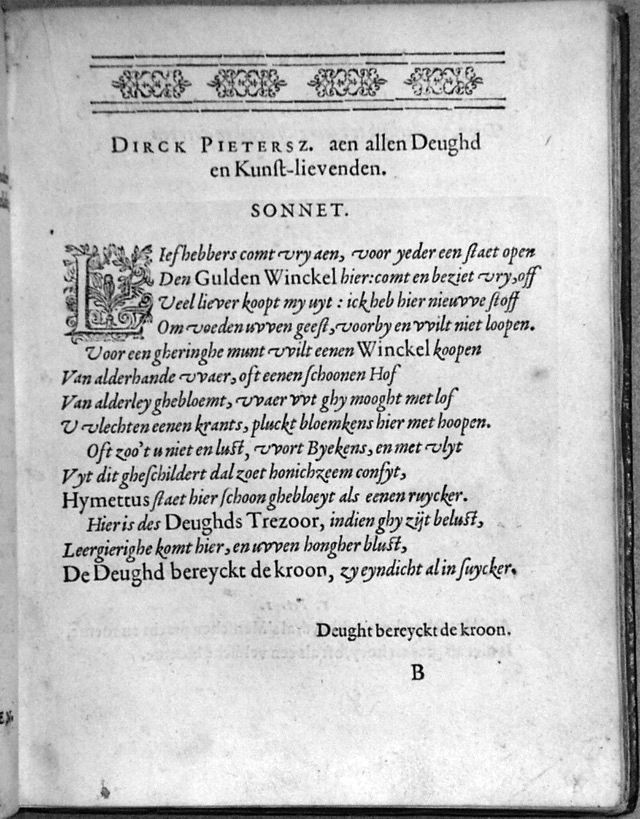 DIRCK PIETERSZ. aen allen Deughd
en Kunst-lievenden.
SONNET.
LIefhebbers comt vry aen, voor yeder een staet open
Den Gulden Winckel hier: comt en beziet vry, off
Veel liever koopt my uyt : ick heb hier nieuwe stoff
Om voeden uwen geest, voorby en wilt niet loopen.
Voor een gheringhe munt wilt eenen Winckel koopen
Van alderhande waer, oft eenen schoonen Hof
Van alderley ghebloemt, waer wt ghy mooght met lof
U vlechten eenen krants, pluckt bloemkens hier met hoopen.
Oft zoo't u niet en lust, wort Byekens, en met vlyt
Vyt dit gheschildert dal zoet honichzeem confyt,
Hymettus staet hier schoon ghebloeyt als eenen ruycker.
Hier is des Deughds Trezoor, indien ghy zijt belust,
Leergierighe komt hier, en uwen hongher blust,
De Deughd bereyckt de kroon, zy eyndicht al in suycker.
Deught bereyckt de kroon.
B